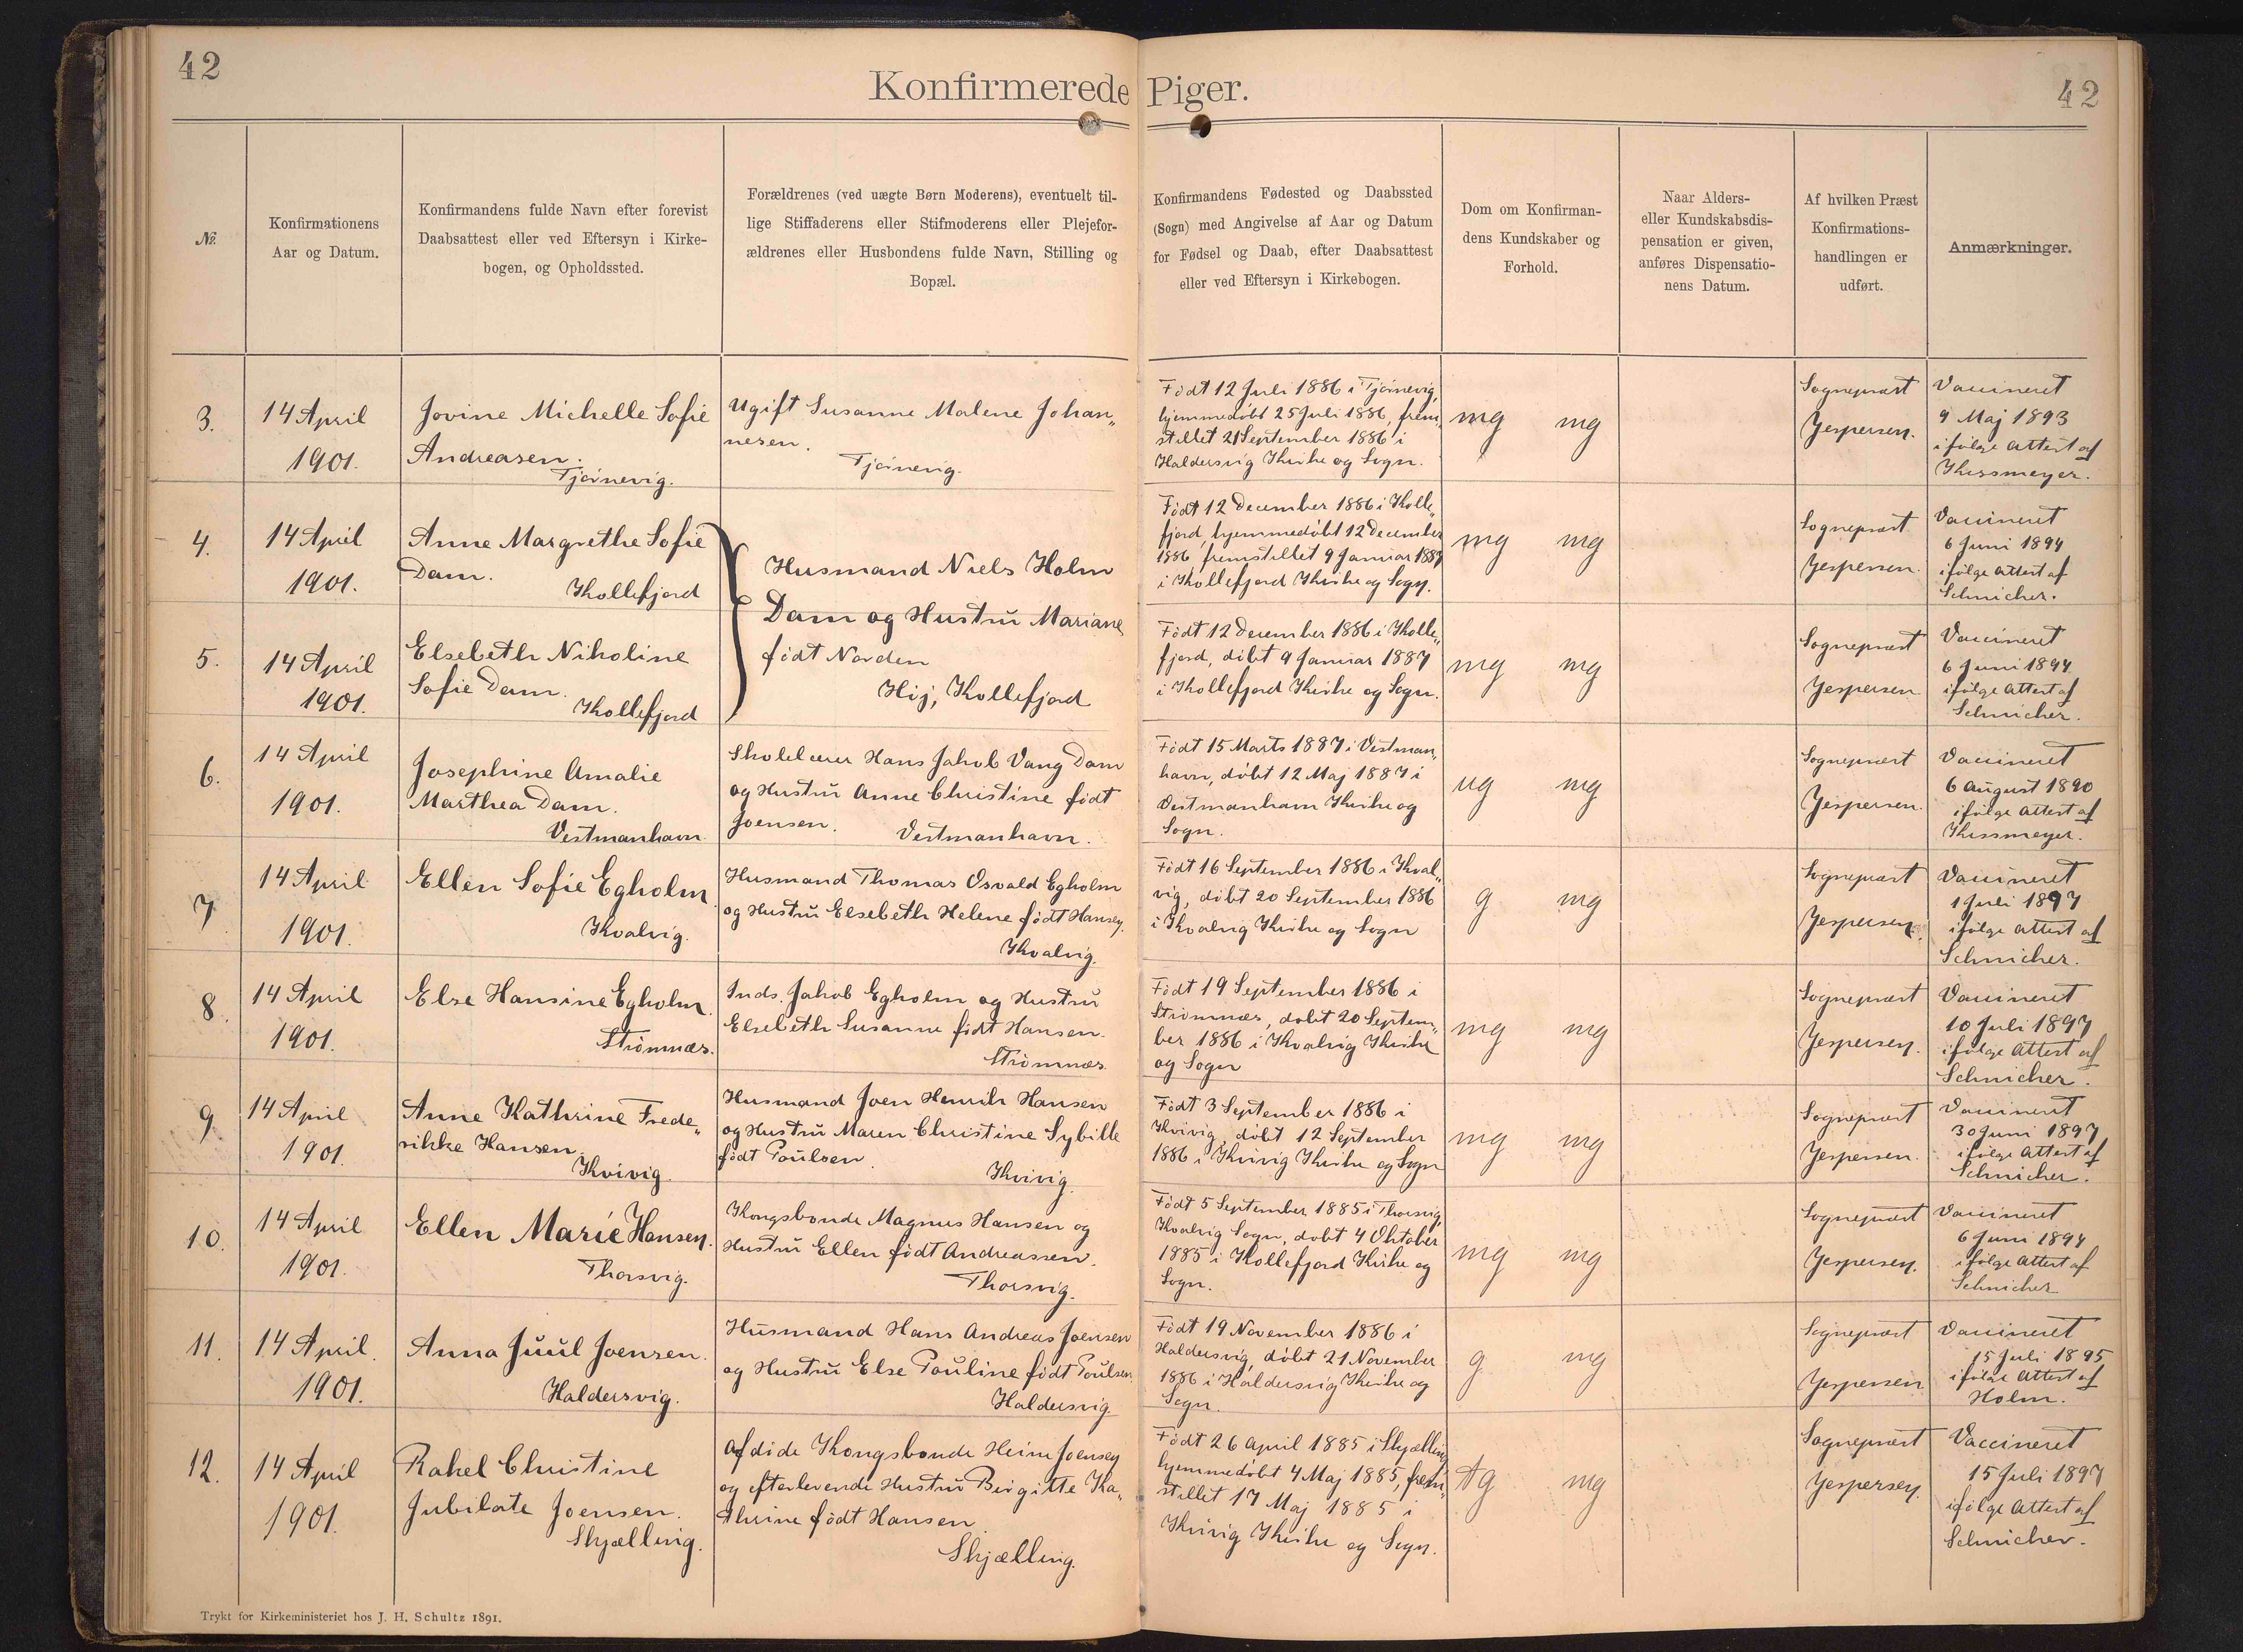 42
Konfirmerede Piger.
42
№.
Konfirmationens
Aar og Datum.
Konfirmandens fulde Navn efter forevist
Daabsattest eller ved Eftersyn i Kirke-
bogen, og Opholdssted.
Forældrenes (ved uægte Børn Moderens), eventuelt til-
lige Stiffaderens eller Stifmoderens eller Plejefor-
ældrenes eller Husbondens fulde Navn, Stilling og
Bopæl.
Konfirmandens Fødested og Daabssted
(Sogn) med Angivelse af Aar og Datum
for Fødsel og Daab, efter Daabsattest
eller ved Eftersyn i Kirkebogen.
Dom om Konfirman-
dens Kundskaber og
Forhold.
Naar Alders-
eller Kundskabsdis-
pensation er given,
anføres Dispensatio-
nens Datum.
Af hvilken Præst
Konfirmations-
handlingen er
udført.
Anmærkninger.
3.
14 April
1901.
Jovine Michelle Sofie
Andreasen.
Tjörnevig.
Ugift Susanne Malene Johan„
nesen.
Tjörnevig.
Födt 12 Juli 1886 i Tjörnevig,
hjemmedöbt 25 Juli 1886, frem„
stillet 21 September 1886 i
Haldersvig Kirke og Sogn.
mg mg
Sognepræst
Jespersen.
Vaccineret
9 Maj 1893
ifölge Attest af
Kissmeyer.
4.
14 April
1901.
Anne Margrethe Sofie
Dam.
Kollefjord
Husmand Niels Holm
Dam og Hustru Mariane
födt Norden
Hij, Kollefjord
Födt 12 December 1886 i Kolle„
fjord, hjemmedöbt 12 December
1886, fremstillet 9 Januar 1887
i Kollefjord Kirke og Sogn.
mg mg
Sognepræst
Jespersen.
Vaccineret
6 Juni 1894
ifölge Attest af
Schnicher.
5.
14 April
1901.
Elsebeth Nikoline
Sofie Dam.
Kollefjord
Födt 12 December 1886 i Kolle„
fjord, döbt 9 Januar 1887
i Kollefjord Kirke og Sogn.
mg mg
Sognepræst
Jespersen
Vaccineret
6 Juni 1894
ifölge Attest af
Schnicher.
6.
14 April
1901.
Josephine Amalie
Marthea Dam.
Vestmanhavn.
Skolelærer Hans Jakob Vang Dam
og Hustru Anne Christine födt
Joensen.
Vestmanhavn.
Födt 15 Marts 1887 i Vestman„
havn, döbt 12 Maj 1887 i
Vestmanhavn Kirke og
Sogn.
ug mg
Sognepræst
Jespersen.
Vaccineret
6 August 1890
ifölge Attest af
Kissmeyer.
7
14 April
1901.
Ellen Sofie Egholm.
Kvalvig.
Husmand Thomas Osvald Egholm
og Hustru Elsebeth Helene födt Hansen.
Kvalvig.
Födt 16 September 1886 i Kval„
vig, döbt 20 September 1886
i Kvalvig Kirke og Sogn
g mg
Sognepræst
Jespersen.
Vaccineret
1 Juli 1897
ifölge Attest af
Schnicher.
8.
14 April
1901.
Else Hansine Egholm.
Strömnæs.
Inds. Jakob Egholm og Hustru
Elsebeth Susanne födt Hansen.
Strömnæs
Födt 19 September 1886 i
Strömnæs, döbt 20 Septem„
ber 1886 i Kvalvig Kirke
og Sogn
mg mg
Sognepræst
Jespersen.
Vaccineret
10 Juli 1897
ifölge Attest af
Schnicher.
9
14 April
1901.
Anne Kathrine Frede„
rikke Hansen.
Kvivig
Husmand Joen Henrik Hansen
og Hustru Maren Christine Sybille
födt Poulsen.
Kvivig.
Födt 3 September 1886 i
Kvivig, döbt 12 September
1886 i Kvivig Kirke og Sogn
mg mg
Sognepræst
Jespersen.
Vaccineret
30 Juni 1897
ifölge Attest af
Schnicher.
10.
14 April
1901.
Ellen Marie Hansen.
Thorsvig.
Kongsbonde Magnus Hansen og
Hustru Ellen födt Andreassen.
Thorsvig.
Födt 5 September 1885 i Thorsvig,
Kvalvig Sogn, döbt 4 Oktober
1885 i Kollefjord Kirke og
Sogn.
mg mg
Sognepræst
Jespersen.
Vaccineret
6 Juni 1894
ifölge Attest af
Schnicher
11.
14 April.
1901.
Anna Juul Joensen.
Haldersvig.
Husmand Hans Andreas Joensen
og Hustru Else Pouline födt Poulsen.
Haldersvig.
Födt 19 November 1886 i
Haldersvig, döbt 21 November
1886 i Haldersvig Kirke og
Sogn.
g mg
Sognepræst
Jespersen
Vaccineret
15 Juli 1895
ifölge Attest af
Holm.
12.
14 April
1901.
Rakel Christine
Jubilate Joensen.
Skjælling.
Afdöde Kongsbonde Heine Joensen
og efterlevende Hustru Birgitte Ka„
thrine födt Hansen.
Skjælling.
Födt 26 April 1885 i Skjælling
hjemmedöbt 4 Maj 1885, frem„
stillet 17 Maj 1885 i
Kvivig Kirke og Sogn.
tg mg
Sognepræst
Jespersen.
Vaccineret
15 Juli 1897
ifölge Attest af
Schnicher.
Trykt for Kirkeministeriet hos J. H. Schultz 1891.